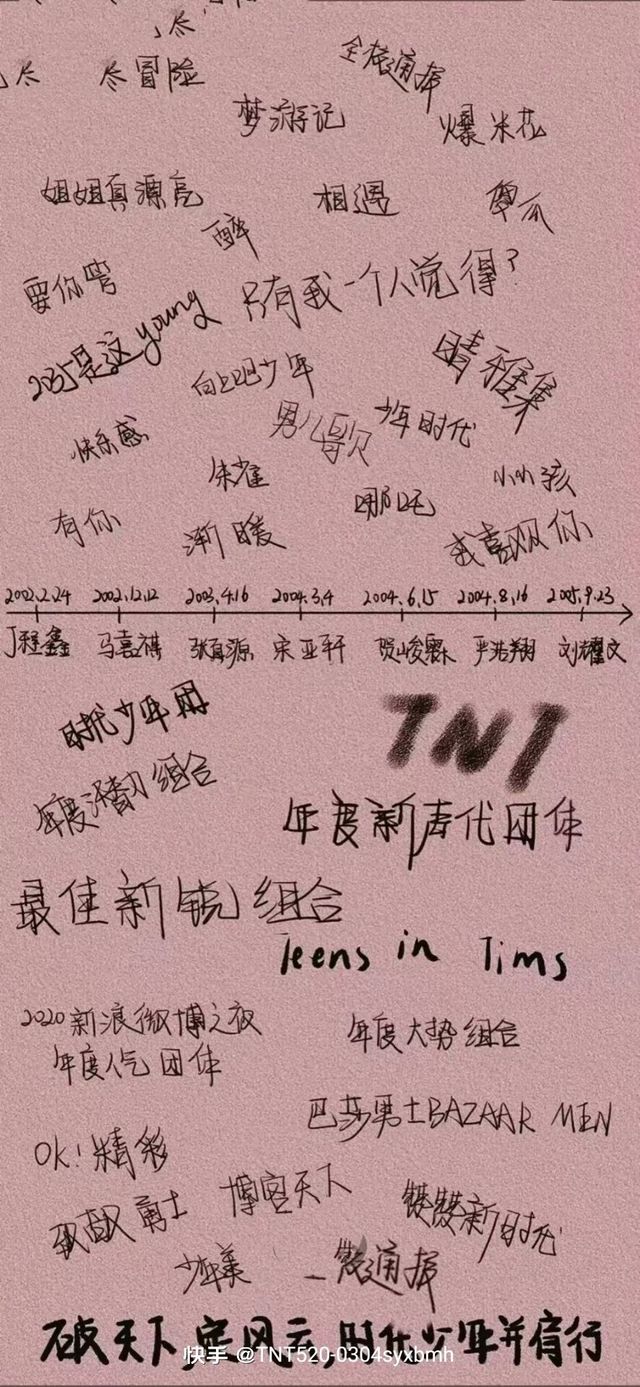 尽
尽
尽冒险
全核通指
梦游记
爆米花
姐姐真源亮
相遇
醉
要你管
只有我一个人觉得?
2035是这young
向上吧少年
晴雅集
快乐感
男儿歌
少年时代
朱雀
小小孩
有你
渐暖
哪吒
我喜欢你
2002.2.24 2002.12.12 2003.4.16 2004.3.4 2004.6.15 2004.8.16 2005.9.23
丁程鑫 马嘉祺 张真源 宋亚轩 贺峻霖 严浩翔 刘耀文
时代少年团
TNT
年度潜力组合
年度新声代团体
最佳新锐组合
Teens in Tims
2020新浪微博之夜
年度人气团体
年度大势组合
巴莎男士BAZAAR MEN
OK!精彩
博客天下
飒飒勇士
新时代
少年美
破天下定风云,时代少年并肩行
快手 @TNT520-0304syxbmh